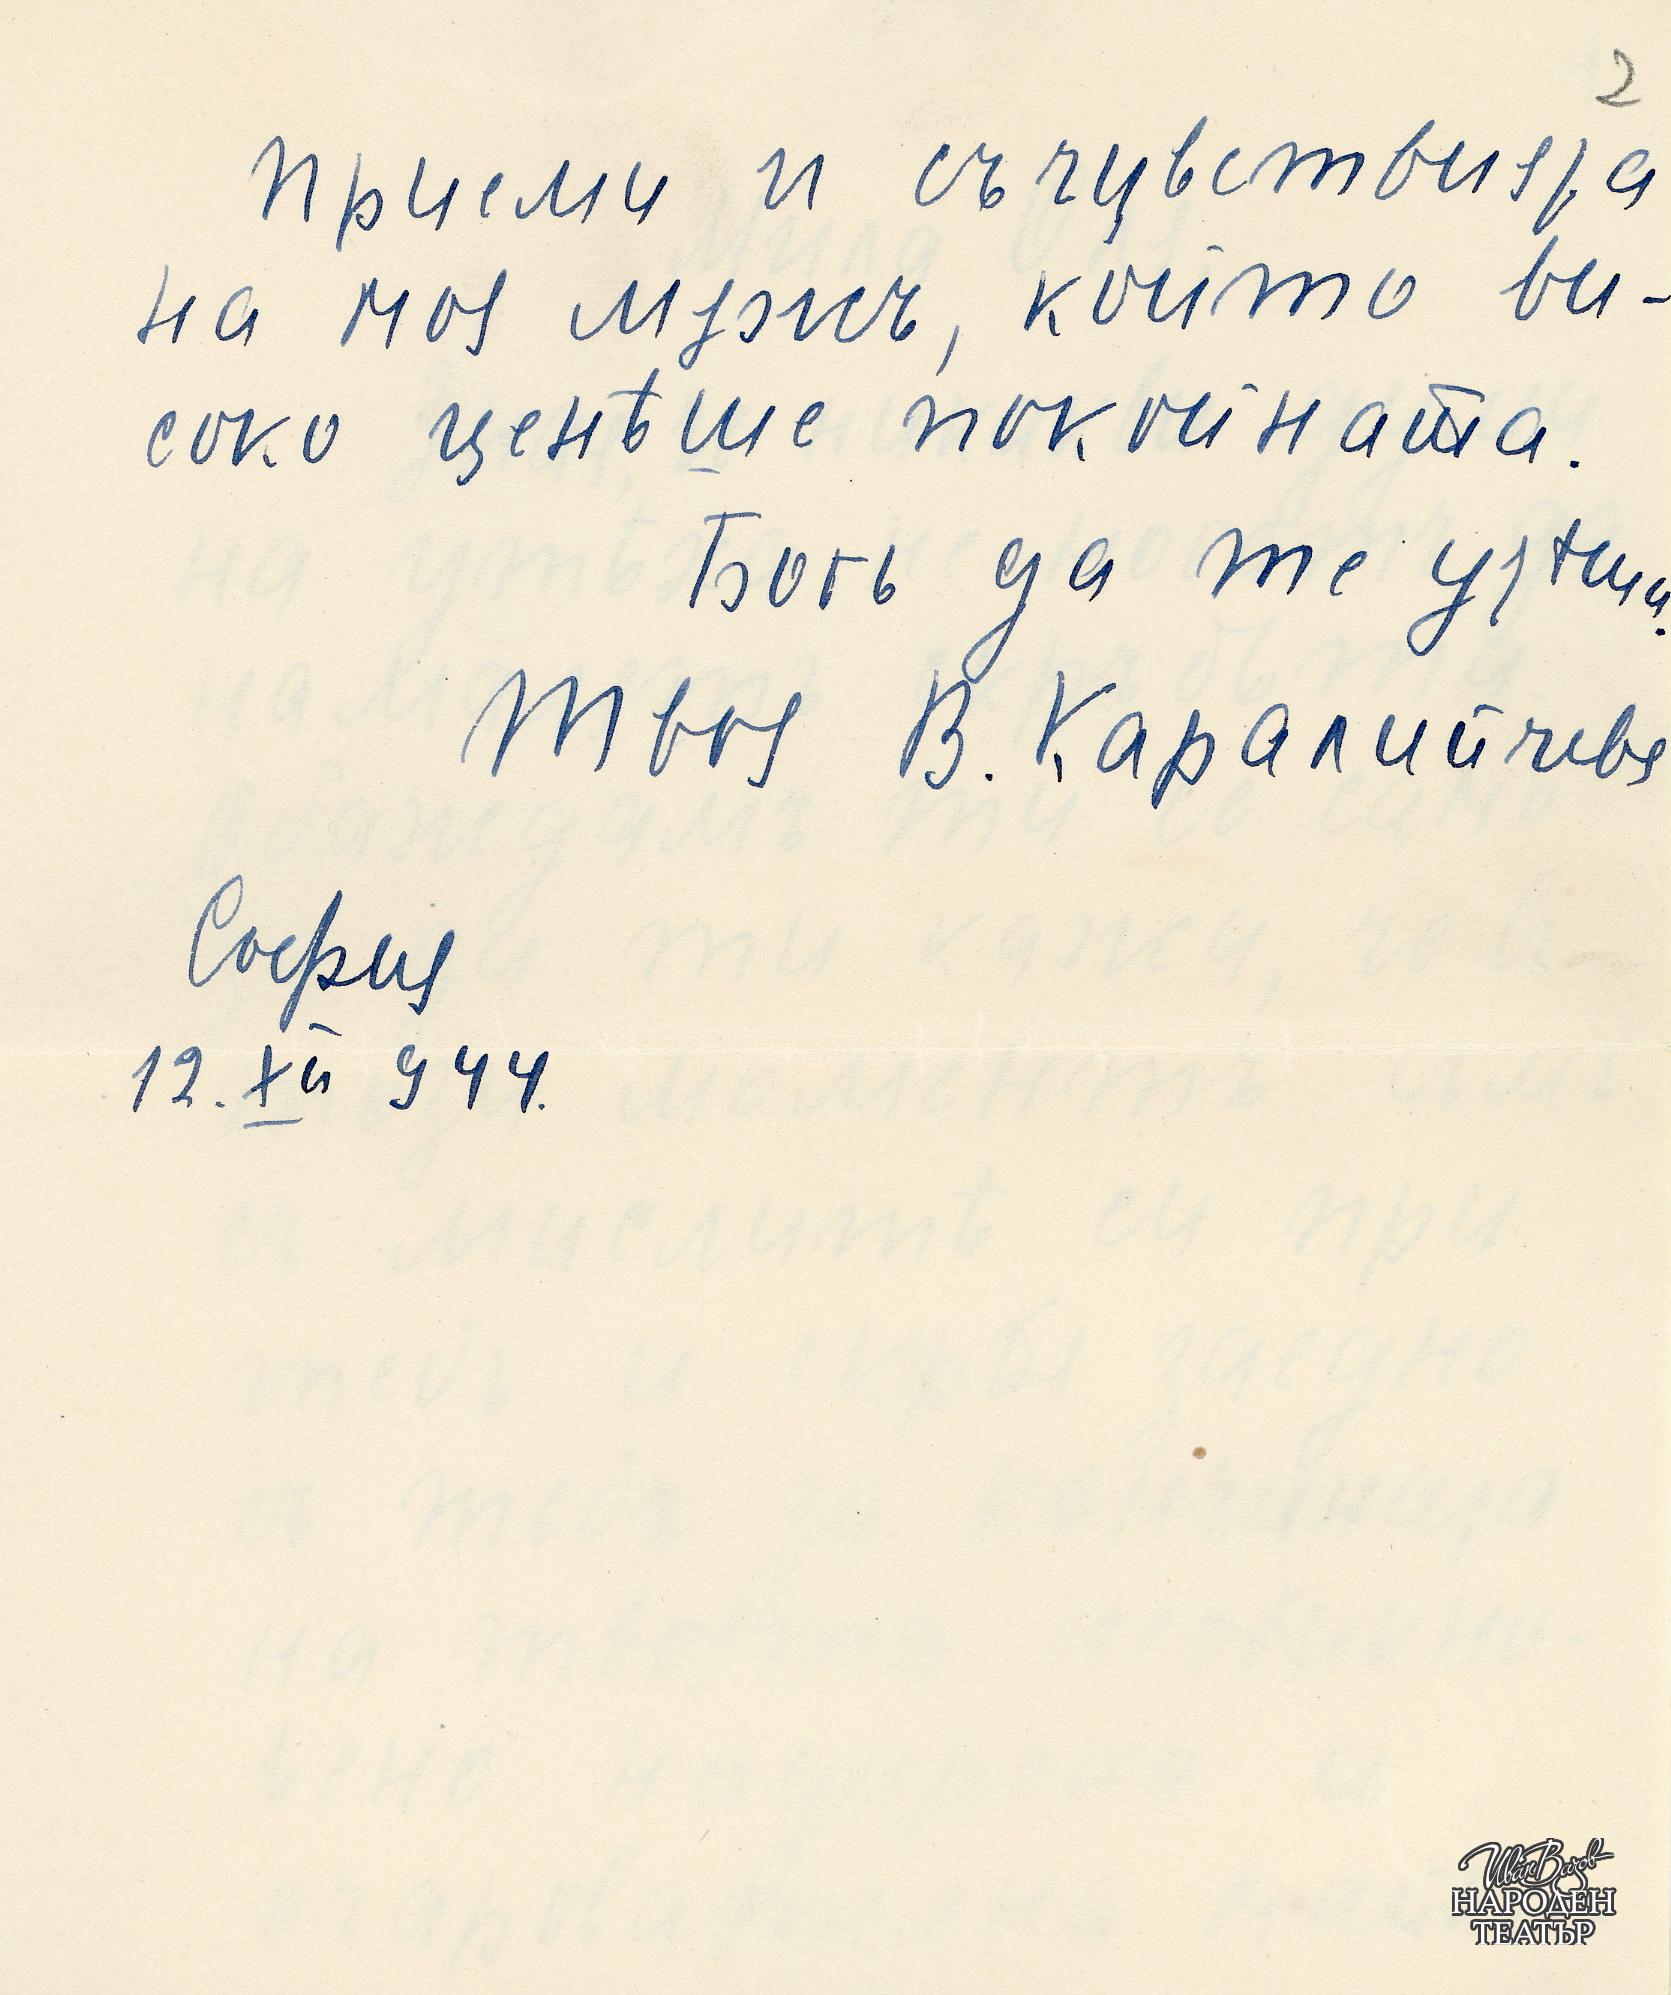 2
Приеми и съчувствията
на моя мѫжъ, който ви-
соко ценѣше покойната.
Богъ да те утѣши.
Твоя В. Каралийчева
София
12. XII 944.
Иван Вазов
НАРОДЕН
ТЕАТЪР